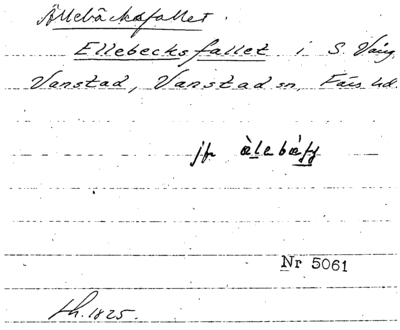 Ällebäcksfallet.
Ellebecksfallet i S. Vång,
Vanstad, Vanstad sn, Färs hd.
jfr
Nr 5061
Lh. 1825.